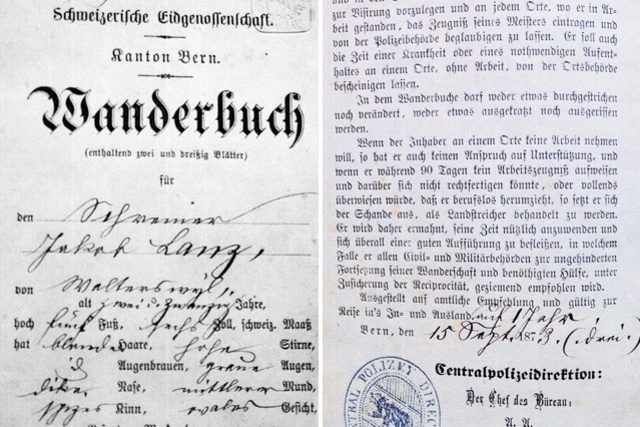 Schweizerische Eidgenossenschaft.
Kanton Bern.
Wanderbuch
(enthaltend zwei und dreißig Blätter)
für
den Schreiner
Jakob Lanz,
von Walterswyl,
alt zwei u. zwanzig Jahre,
hoch fünf Fuß, sechs Zoll, schweiz. Maaß
hat blonde Haare, hohe Stirne,
id Augenbrauen, graue Augen,
dicke Nase, mittlerer Mund,
spizes Kinn, ovales Gesicht,
zur Visirung vorzulegen und an jedem Orte, wo er in Ar-
beit gestanden, das Zeugniß seines Meisters eintragen und
von der Polizeibehörde beglaubigen zu lassen. Er soll auch
die Zeit einer Krankheit oder eines nothwendigen Aufent-
haltes an einem Orte, ohne Arbeit, von der Ortsbehörde
bescheinigen lassen.
In dem Wanderbuche darf weder etwas durchgestrichen
noch verändert, weder etwas ausgekratzt noch ausgerissen
werden.
Wenn der Inhaber an einem Orte keine Arbeit nehmen
will, so hat er auch keinen Anspruch auf Unterstützung, und
wenn er während 90 Tagen kein Arbeitszeugniß aufweisen
und darüber sich nicht rechtfertigen könnte, oder vollends
überwiesen würde, daß er berufslos herumzieht, so setzt er sich
der Schande aus, als Landstreicher behandelt zu werden.
Er wird daher ermahnt, seine Zeit nützlich anzuwenden und
sich überall einer guten Aufführung zu befleißen, in welchem
Falle er allen Civil- und Militärbehörden zur ungehinderten
Fortsetzung seiner Wanderschaft und benöthigten Hülfe, unter
Zusicherung der Reciprocität, geziemend empfohlen wird.
Ausgestellt auf amtliche Empfehlung und gültig zur
Reise in's In- und Ausland auf 1 Jahr
Bern, den 15 Sept. 1873. (drei.)
Centralpolizeidirektion:
Der Chef des Büreau:
A. A.
CENTRAL POLIZEY DIREC